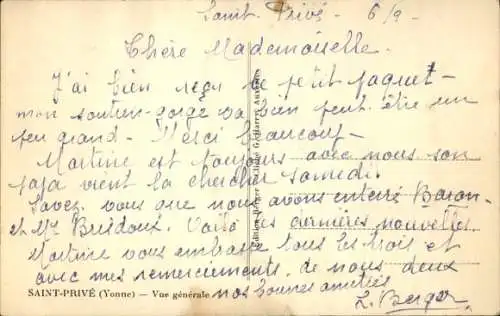 Saint Privé - 6/9 -
Chère Mademoiselle.
J'ai bien reçu le petit paquet -
mon soutien-gorge va bien peut être un
peu grand - Merci beaucoup -
Martine est toujours avec nous son
papa vient la chercher samedi.
Savez vous que nous avons enterré Baron
et Mr Bridoux. Voilà les dernières nouvelles
Martine vous embrasse tous les trois et
avec mes remerciements, de nous deux
SAINT-PRIVÉ (Yonne) — Vue générale
nos bonnes amitiés
L. Berger